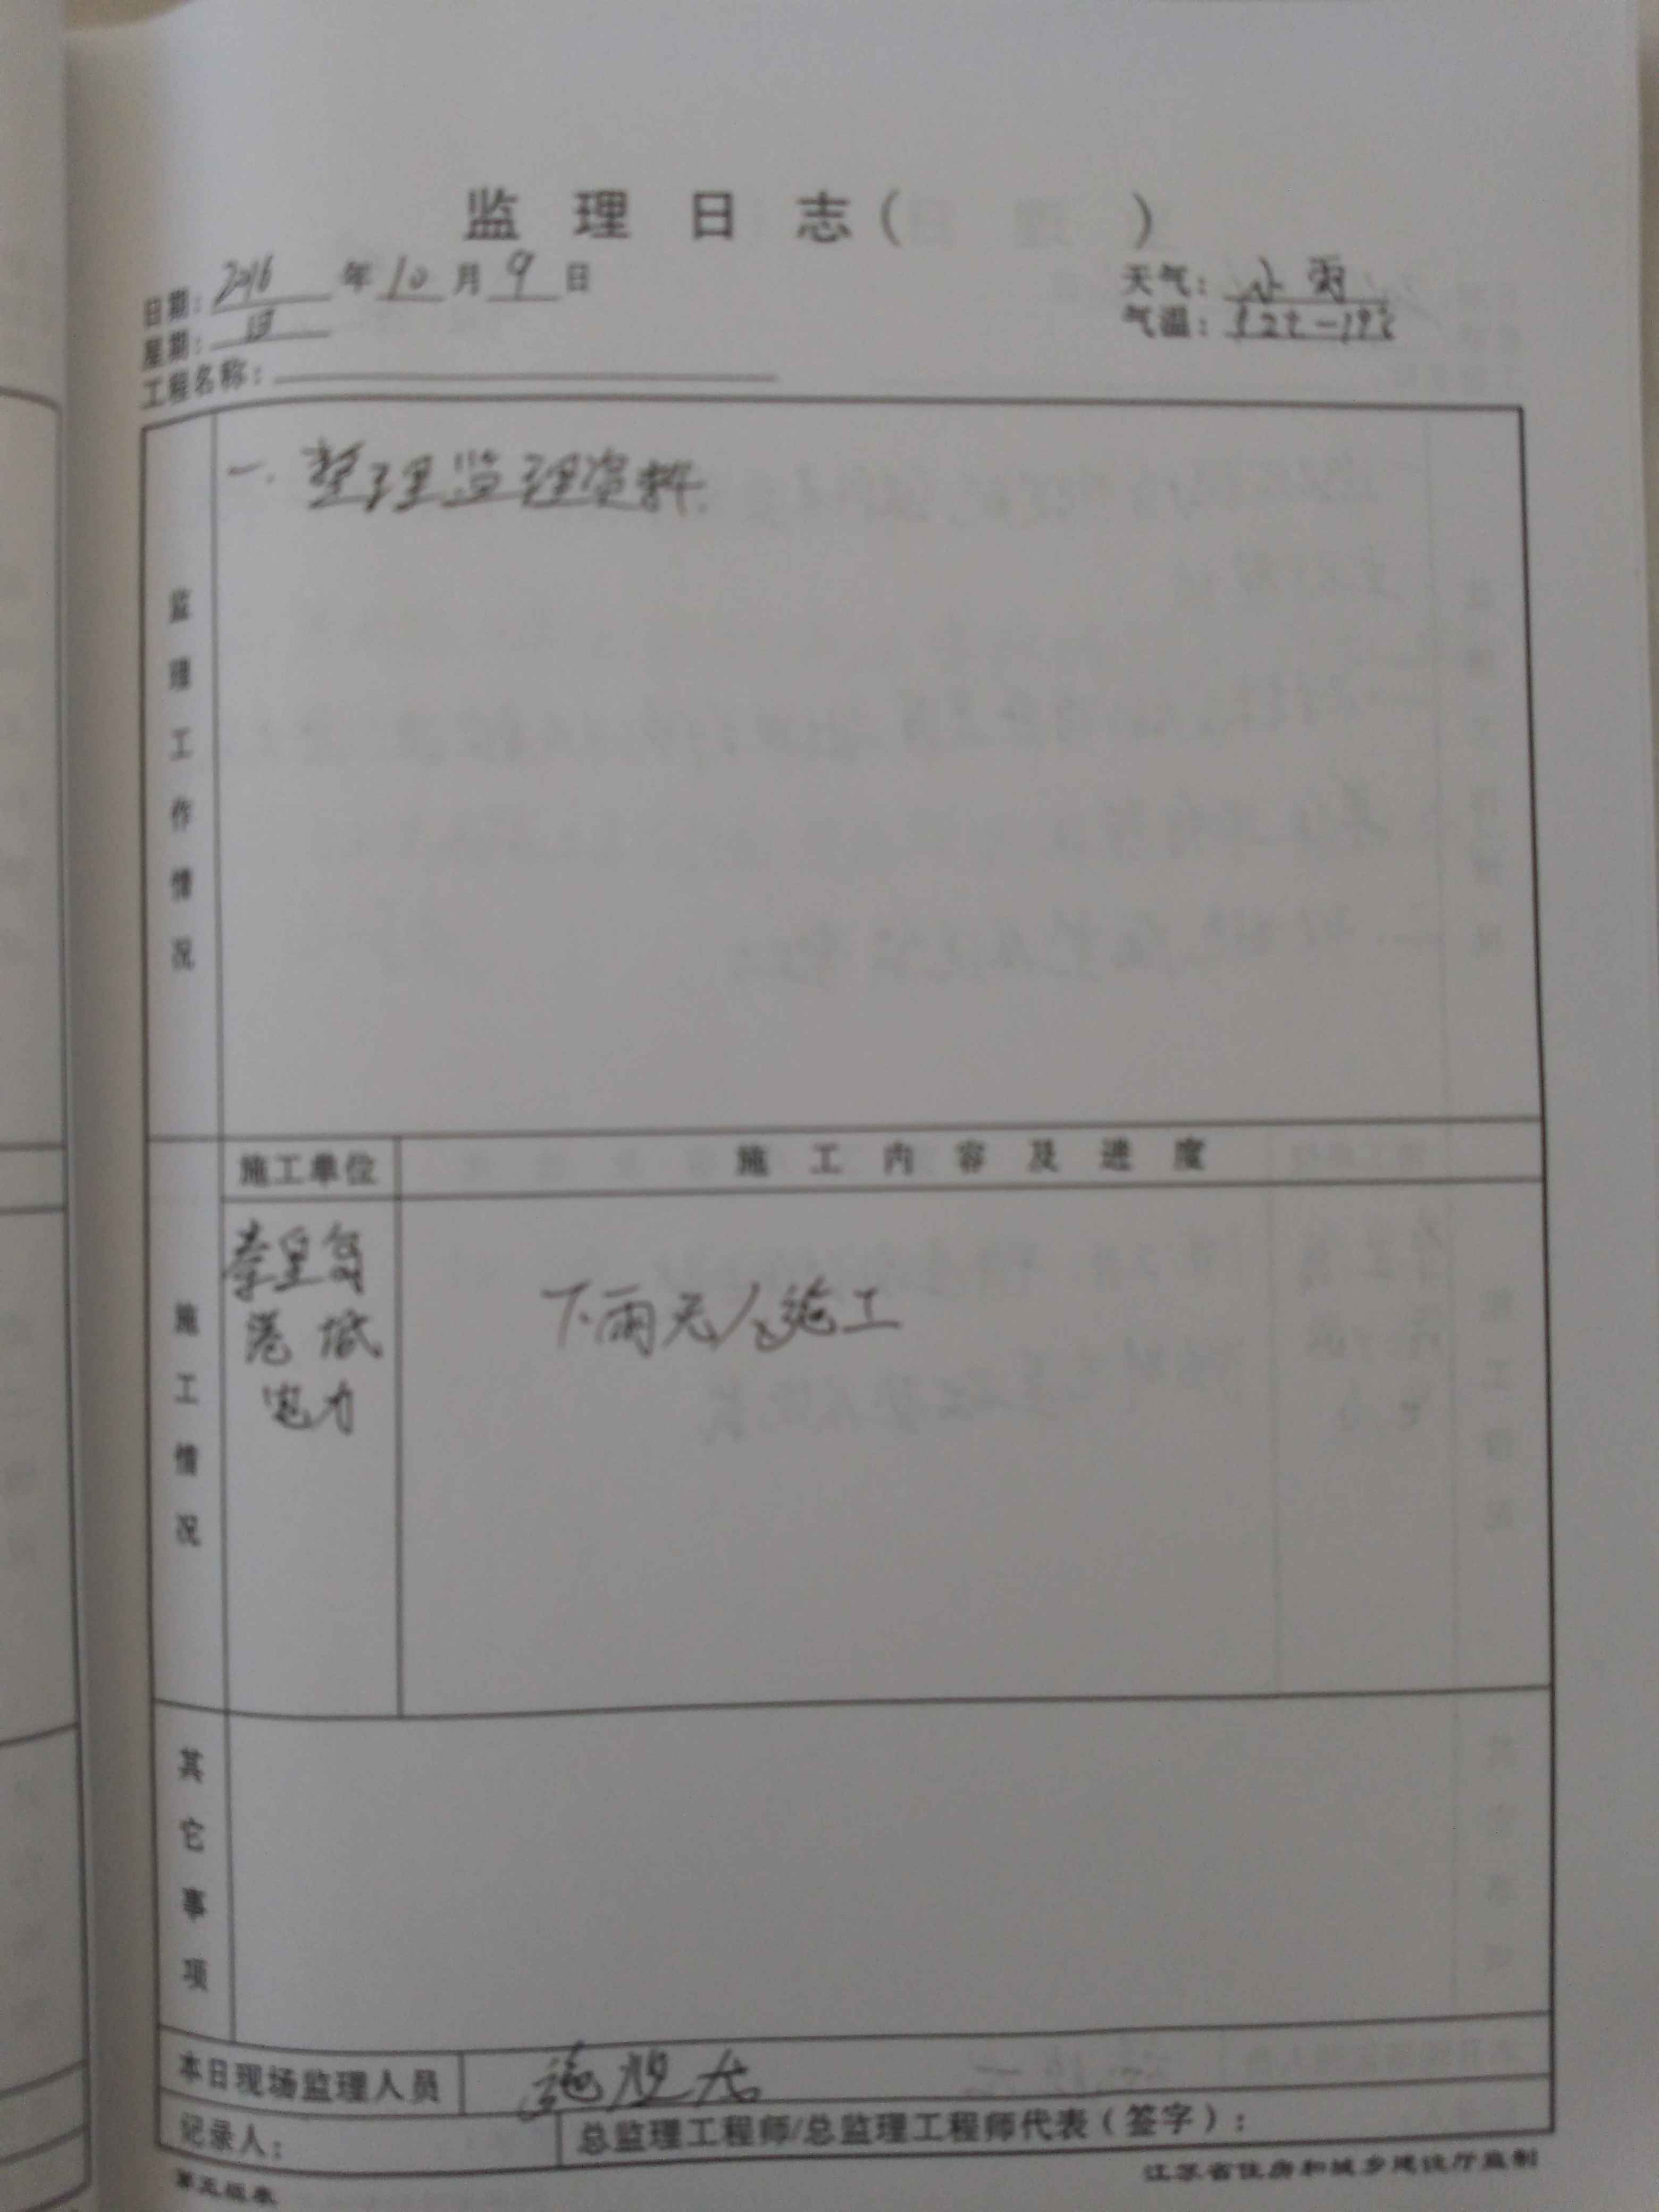 监理日志（ ）
日期：2016年10月9日
天气：小雨
星期：日
气温：12℃-19℃
工程名称：
监理工作情况
一. 整理监理资料.
施工情况
施工单位
施工内容及进度
秦皇岛
港城
电力
下雨无人施工
其它事项
本日现场监理人员
记录人：
总监理工程师/总监理工程师代表（签字）：
第五版表
江苏省住房和城乡建设厅监制